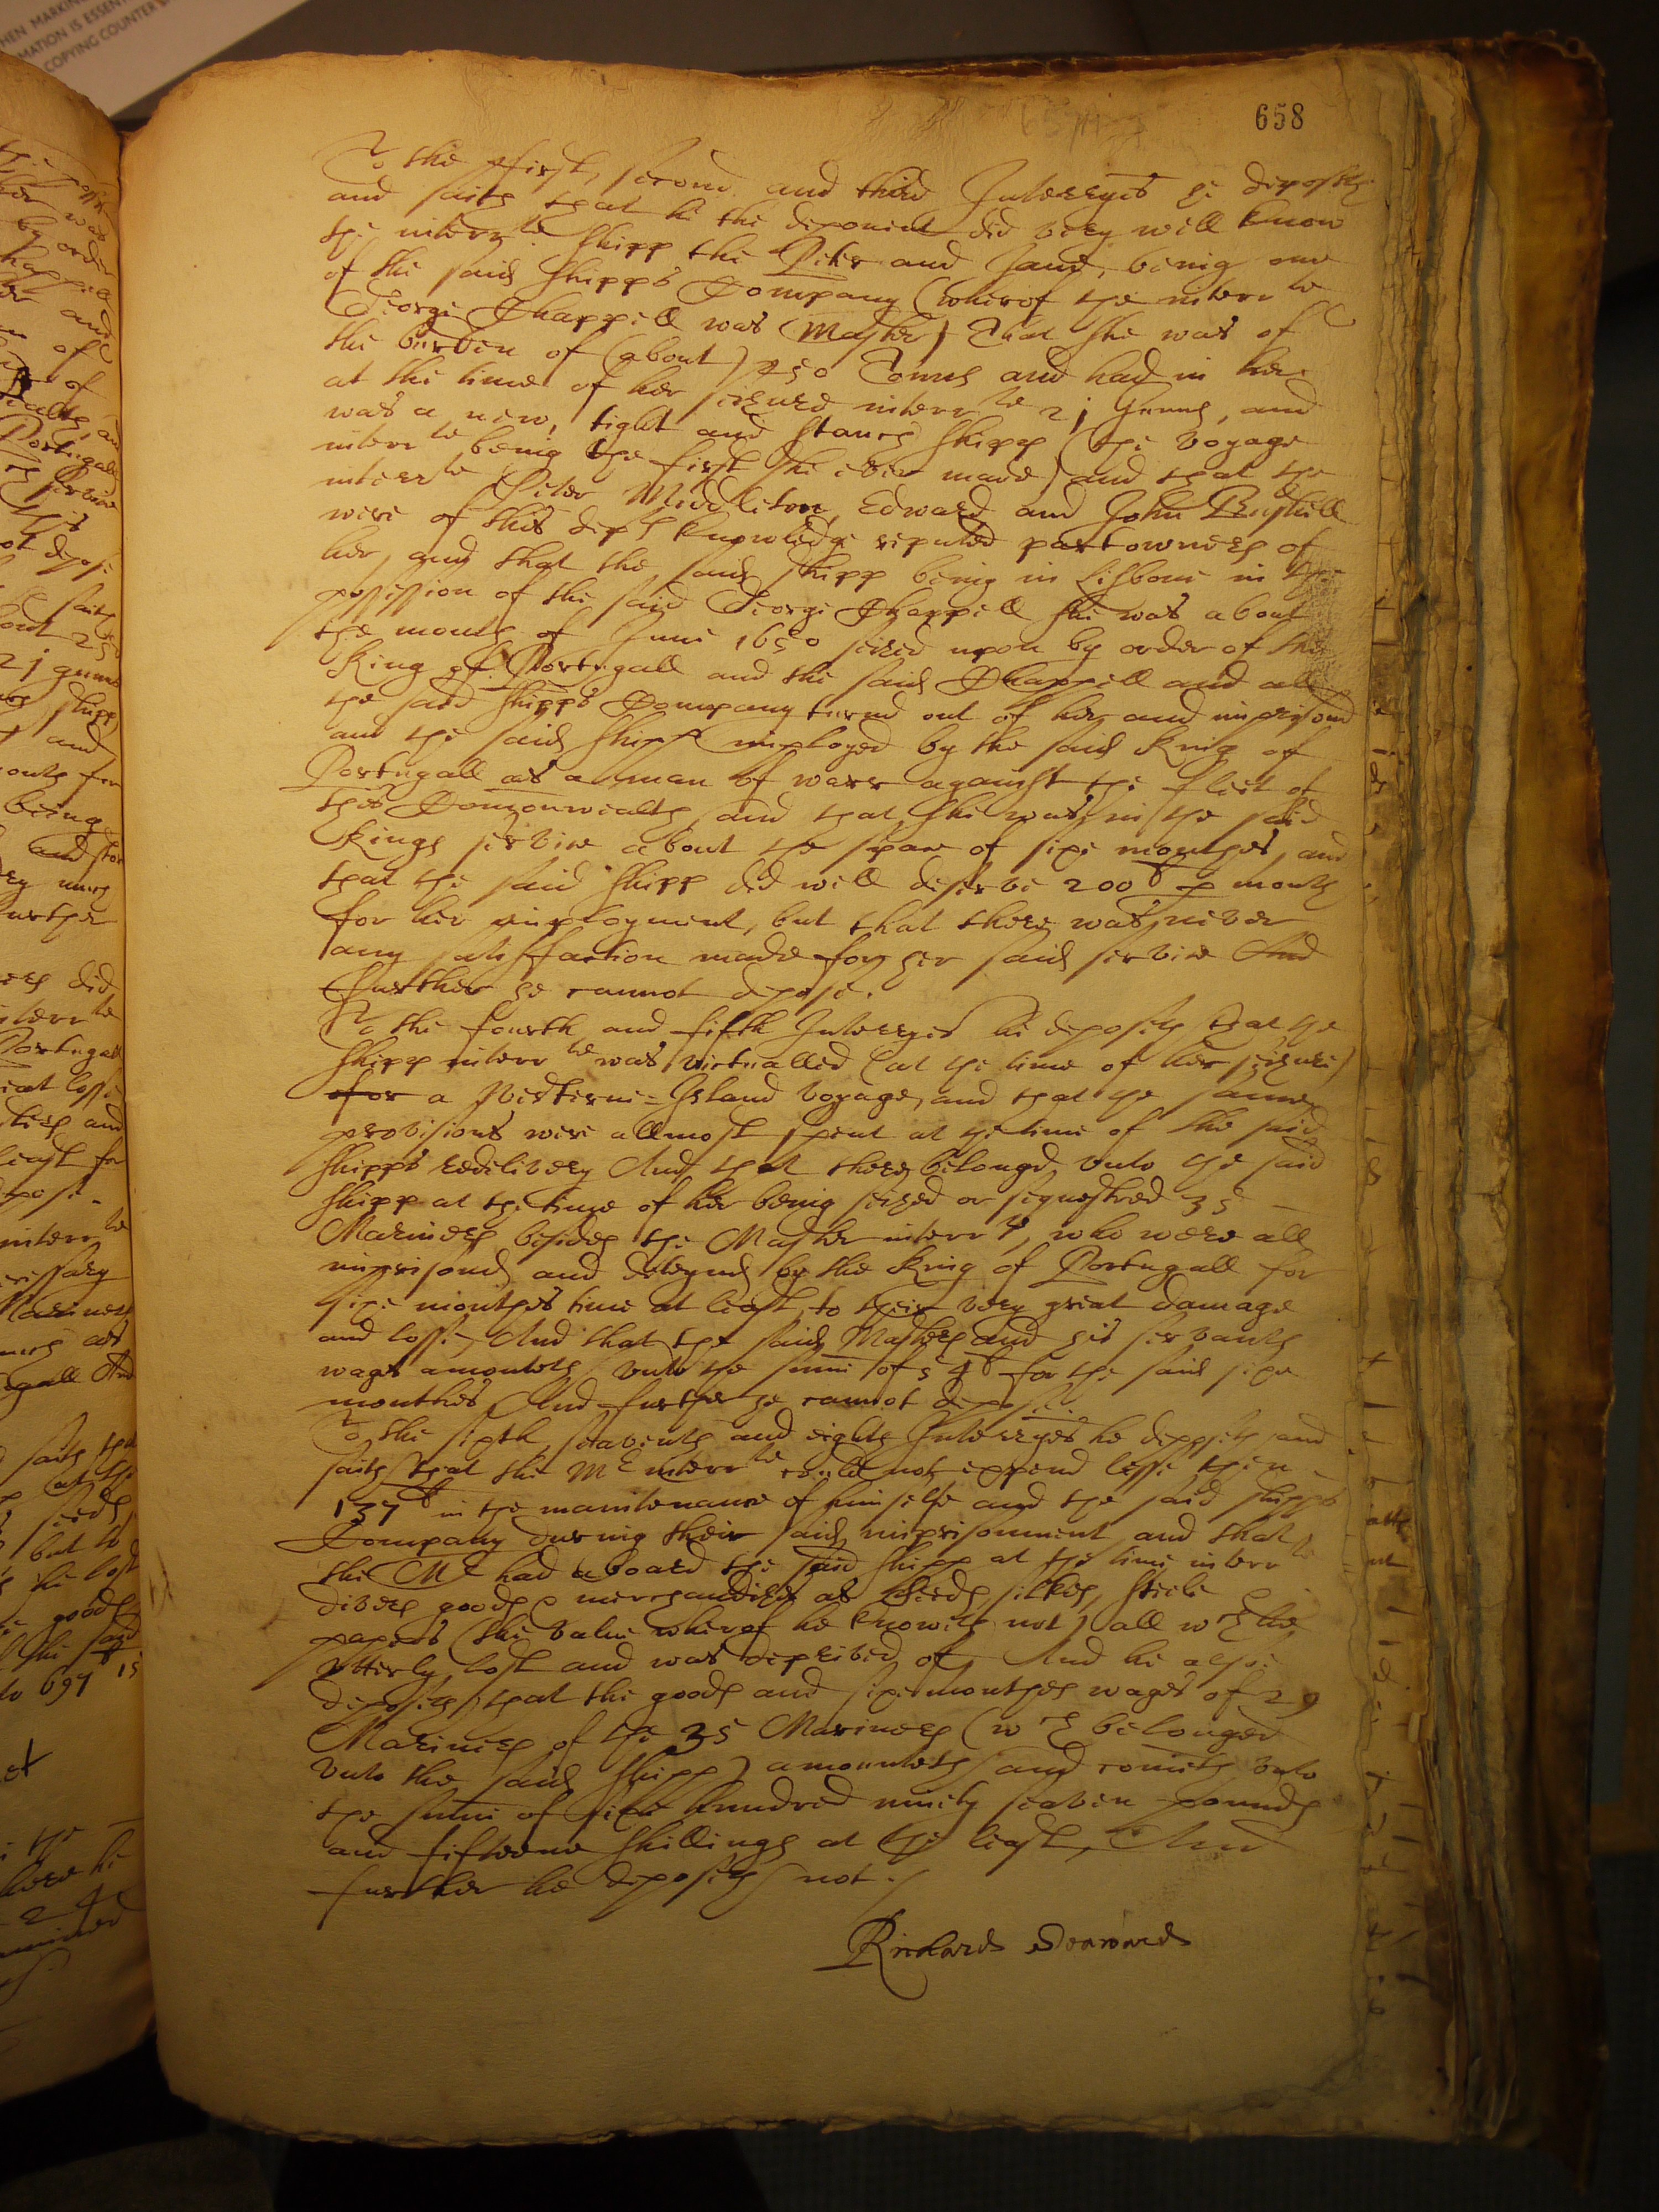 HEN MARKIN
MATION IS ESSEN
COPYING COUNTER
658
To the first, second and third Interryes he deposeth
and saith that he the deponent did very well know
the interr te shipp the Peter and Jane, being one
of the said shipps Company (wherof the interr te
George Chappell was Master) That she was of
the burden of (about) 250 Tonns and had in her
at the time of her seizure interr te 21 gunns, and
was a new, tight and stanch shipp (the voyage
interr te being the first she ever made) and that the
interr te Peter Middleton, Edward and John Bushell
were of this dep ts knowledge reputed partowners of
her, and that the said shipp being in Lisbone in the
possession of the said George Chappell she was about
the moneth of June 1650 seized upon by order of the
King of Portugall and the said Chappell and all
the said shipps Company turnd out of her and imprisond
and the said shipp imployed by the said King of
Portugall as a man of warr against the fleet of
this Comonwealth, and that she was in the said
Kings service about the space of sixe monthes, and
that the said shipp did well deserve 200 li p moneth
for her imployment, but that there was never
any satisfaction made for her said service And
further he cannot depose.
To the fourth and fifth Interryes he deposeth that the
shipp interr te was victualled (at the time of her seizure)
for a Westerne-Island voyage, and that the same
provisions were allmost spent at the time of the said
shipps redelivery And that there belongd unto the said
shipp at the time of her being seized or sequestred 35
Mariners besides the Master interr te, who were all
imprisond and deteynd by the King of Portugall for
sixe monthes time at least, to their very great damage
and losse, And that the said Masters and his servants
wages amounteth unto the summe of 54 li for the said sixe
monthes, And further he cannot depose.
To the sixth, seaventh and eighth Interryes he deposeth and
saith that the M r interr te could not expend lesse then
137 li in the maintenance of himselfe and the said shipps
Company during their said imprisonment, and that
the M r had aboard the said shipp at the time interr te
divers goods & merchandizes as seeds, silkes, steele
papers (the value wherof he knoweth not) all w ch he
utterly lost and was deprived of, And he alsoe
deposeth that the goods and sixe monthes wages of 29
Mariners of the 35 Mariners (w ch belonged
unto the said shipp) amounteth and cometh unto
the summe of sixe hundred ninety seaven pounds
and fifteene shillings at the least, And
further he deposeth not./
Richard